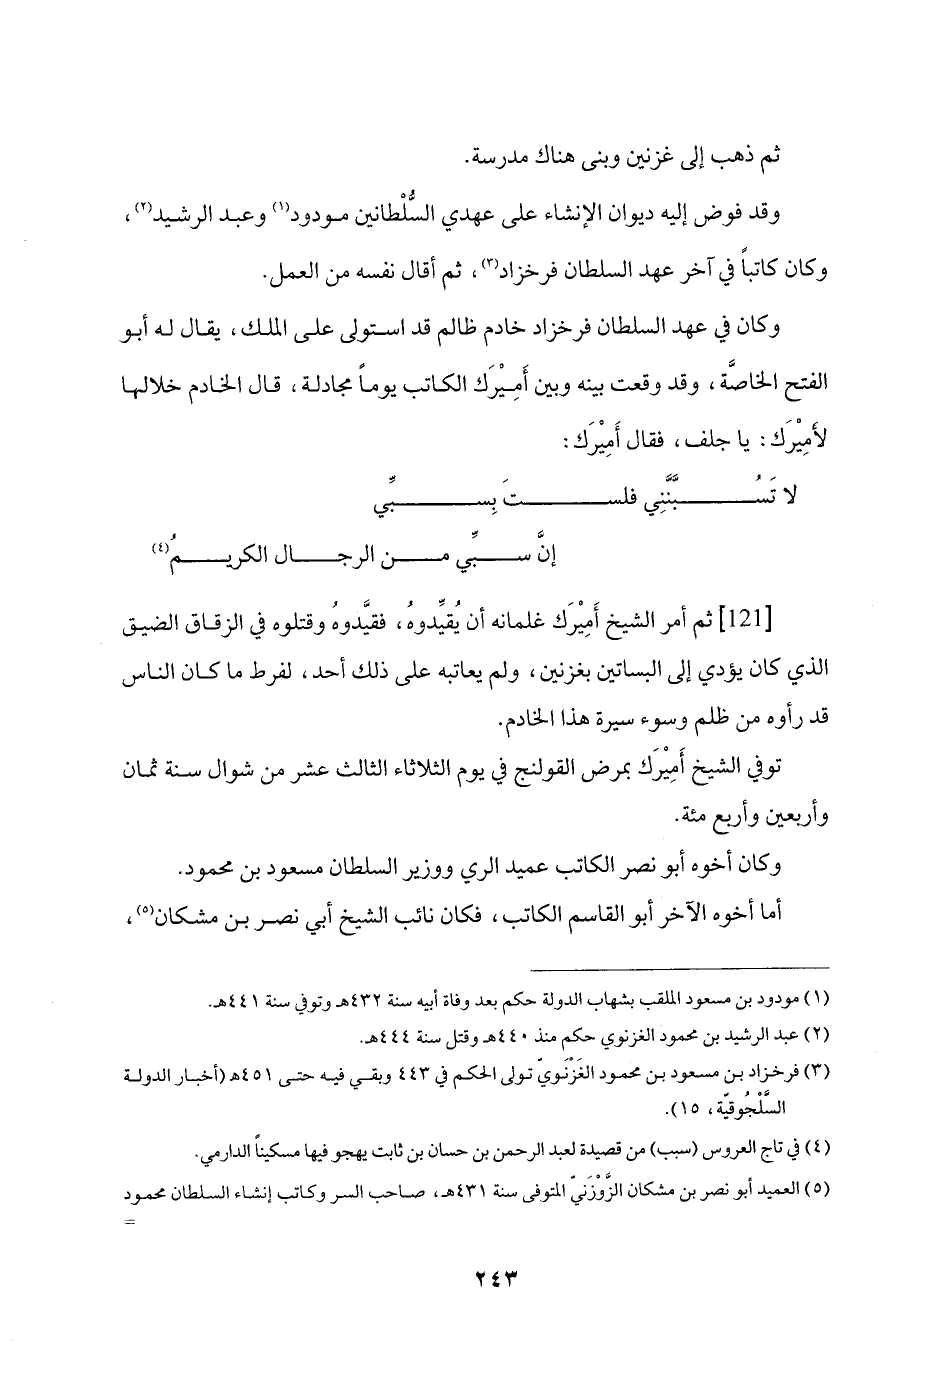 ثم ذهب إلى غزنين وبنى هناك مدرسة.
وقد فوض إليه ديوان الإنشاء على عهدي السُّلْطانين مودود(١) وعبد الرشيد(٢)،
وكان كاتباً في آخر عهد السلطان فرخزاد(٣)، ثم أقال نفسه من العمل.
وكان في عهد السلطان فرخزاد خادم ظالم قد استولى على الملك، يقال له أبو
الفتح الخاصَّة، وقد وقعت بينه وبين أَمِيْرَك الكاتب يوماً مجادلة، قال الخادم خلالها
لأَمِيْرَك: يا جلف، فقال أَمِيْرَك:
لا تَسُبَّنَّنِي فلستَ بِسبِّي
إنَّ سبِّي من الرجال الكريمُ(٤)
[121] ثم أمر الشيخ أَمِيْرَك غلمانه أن يُقيِّدوهُ، فقيَّدوهُ وقتلوه في الزقاق الضيق
الذي كان يؤدي إلى البساتين بغزنين، ولم يعاتبه على ذلك أحد، لفرط ما كان الناس
قد رأوه من ظلم وسوء سيرة هذا الخادم.
توفي الشيخ أَمِيْرَك بمرض القولنج في يوم الثلاثاء الثالث عشر من شوال سنة ثمان
وأربعين وأربع مئة.
وكان أخوه أبو نصر الكاتب عميد الري ووزير السلطان مسعود بن محمود.
أما أخوه الآخر أبو القاسم الكاتب، فكان نائب الشيخ أبي نصر بن مشكان(٥)،
(١) مودود بن مسعود الملقب بشهاب الدولة حكم بعد وفاة أبيه سنة ٤٣٢هـ وتوفي سنة ٤٤١هـ.
(٢) عبد الرشيد بن محمود الغزنوي حكم منذ ٤٤٠هـ وقتل سنة ٤٤٤هـ.
(٣) فرخزاد بن مسعود بن محمود الغَزْنَويّ تولى الحكم في ٤٤٣ وبقي فيه حتى ٤٥١هـ (أخبار الدولة
السَّلْجُوقيّة، ١٥).
(٤) في تاج العروس (سبب) من قصيدة لعبد الرحمن بن حسان بن ثابت يهجو فيها مسكيناً الدارمي.
(٥) العميد أبو نصر بن مشكان الزَّوْزَنيّ المتوفى سنة ٤٣١هـ، صاحب السر وكاتب إنشاء السلطان محمود
=
٢٤٣